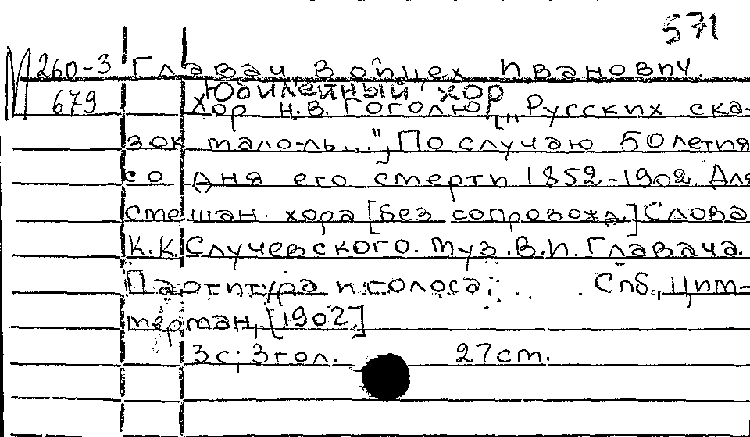 571
М 260-3 Главач Войцех Иванович.
Юбилейный хор
679 Хор Н.В. Гоголю[„Русских ска-
зок мало-ль...", По случаю 50летия
со дня его смерти 1852-1902. Для
смешан. хора [без сопровожд.] Слова
К.К. Случевского. Муз. В.И. Главача.
Партитура и голоса. Спб., Цим-
мерман, [1902]
3с; 3гол. 27см.